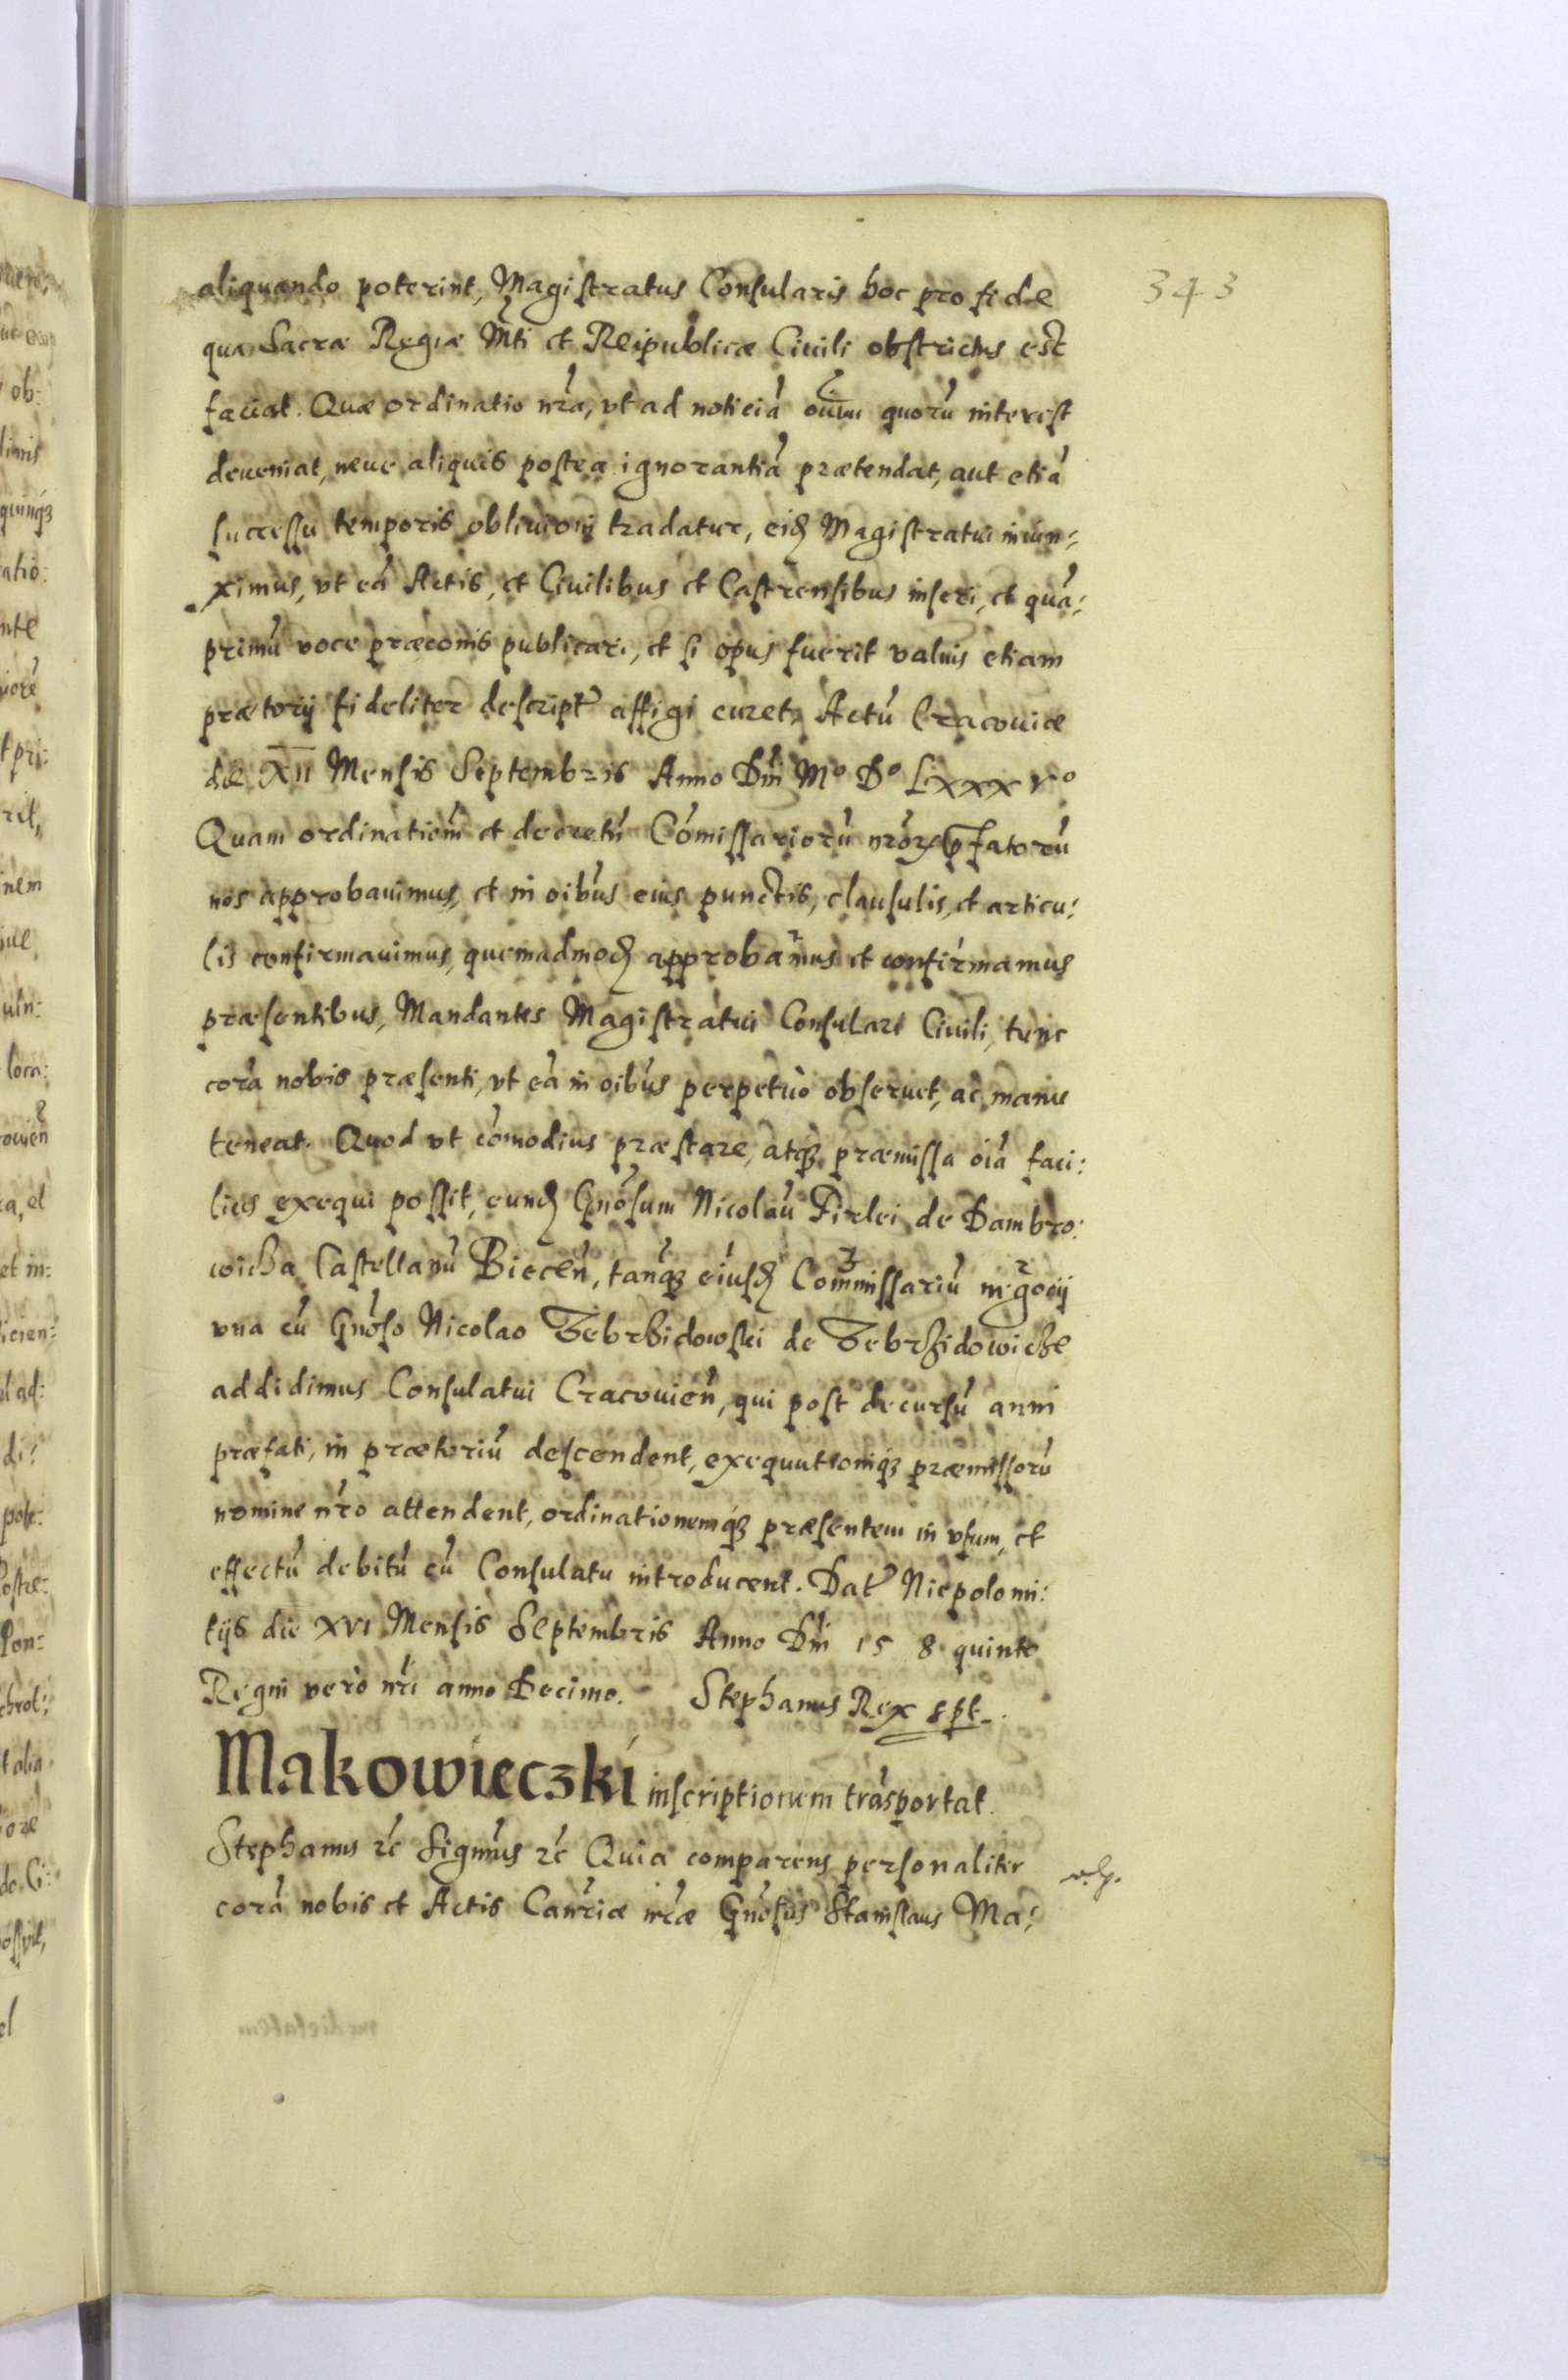 343
aliquando poterint, Magistratus Consularis hoc pro fide
qua Sacræ Regiæ Mti et Reipublicæ Ciuili obstrictus est
faciat. Quæ ordinatio nrã, vt ad noticiã oĩum quorũ interest
deueniat, neue aliquis postea ignorantiã prætendat, aut etiã
successu temporis obliuioni tradatur, eid Magistratui iniun:
ximus, vt eã Actis, et Ciuilibus et Castrensibus inseri, et quã:
primũ voce præconis publicari, et si opus fuerit valuis etiam
prætorij fideliter descript affigi curet, Actũ Cracouiæ
die XII Mensis Septembris Anno Dni Mº Dº LXXXVº
Quam ordinationẽ et decretũ Cõmissariorũ nrõr pfatorũ
nos approbauimus, et in oibũs eius punctis, clausulis, et articu:
lis confirmauimus, quemadmod approbamus et confirmamus
præsentibus, Mandantes Magistratui Consulari Ciuili, tunc
corã nobis præsenti, vt eã in oibũs perpetuò obseruet, ac manu
teneat. Quod vt cõmodius præstare, atq præmissa oiã faci:
lius exequi possit, eund Gnõsum Nicolaũ Firlei de Dambro:
wicza Castellanũ Biecen, tanq eiusd Commissariũ negocij
vna cũ Gnõso Nicolao Zebrzidowski de Zebrzidowicze
addidimus Consulatui Cracouien, qui post decursũ anni
præfati, in prætoriũ descendent, exequutioniq præmissorũ
nomine nrõ attendent, ordinationemq præsentem in vsum, et
effectũ debitũ cũ Consulatu introducent. Dat Niepolomi:
tijs die XVI Mensis Septembris Anno Dni 15 8 quinto
Regni vero nri anno Decimo. Stephanus Rex sspt
Makowieczki inscriptionem trãsportat.
Stephanus etc Signmus etc Quia comparens personaliter
corã nobis et Actis Canriæ nræ Gnõsus Stanislaus Ma: